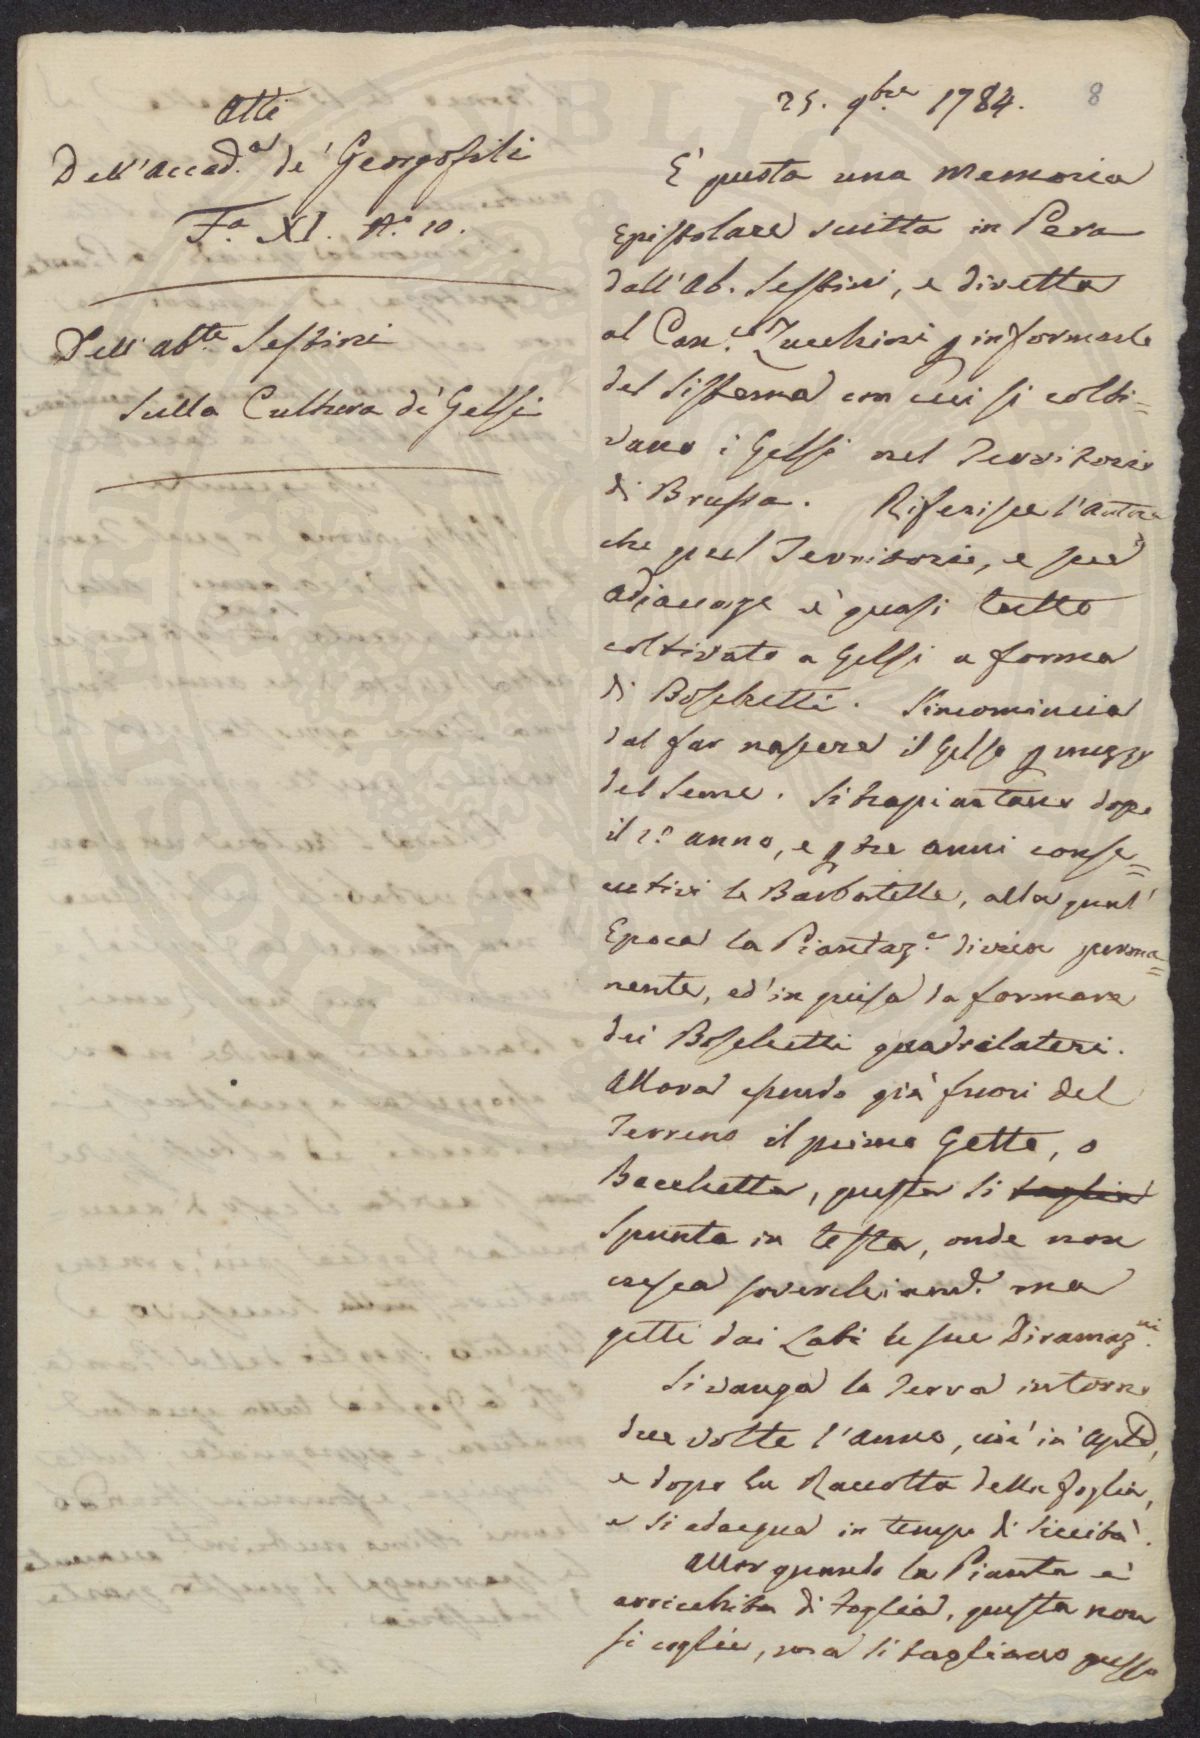 Atti
Dell'Accad.a de' Georgofili
F.a XI. N.o 10.
Dell'ab.te Sestini
Sulla Cultura de' Gelsi
25. 9bre 1784.
8
È questa una Memoria
Epistolare scritta in Pera
dall'Ab. Sestini, e diretta
al Can.e Zucchini p informarlo
del Sistema con cui si colti=
vano i Gelsi nel Territorio
di Brussa. Riferisce l'Autore
che quel Territorio, e sue
adiacenze è quasi tutto
coltivato a Gelsi a forma
di Boschetti. S'incomincia
dal far nascere il Gelso p mezzo
del Seme. Si trapiantano dopo
il 1.o anno, e p tre anni conse=
cutivi le Barbatelle, alla qual'
Epoca la Piantaz.e divien perma=
nente, ed' in guisa da formare
dei Boschetti quadrilateri.
Allora essendo già fuori del
Terreno il primo Getto, o
Bacchetta, questa si taglia
Spunta in testa, onde non
cresca soverchiam.e ma
getti dai Lati le sue Diramaz.ni
Si vanga la Terra intorno
due volte l'anno, cioè in Aple,
e dopo la Raccolta della foglia,
e si adacqua in tempo di Siccità.
Allor quando la Pianta è
arricchita di foglia, questa non
si coglie, ma si tagliano quasi